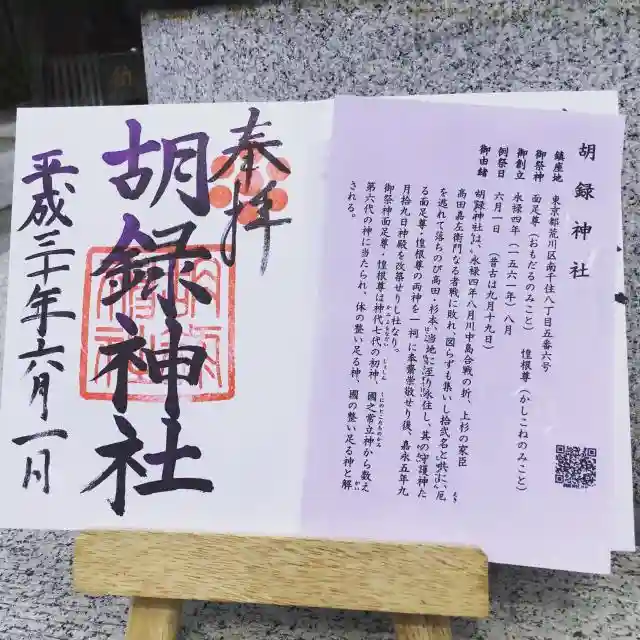 胡録神社
鎮座地 東京都荒川区南千住八丁目五番六号
御祭神 面足尊(おもだるのみこと) 惶根尊(かしこねのみこと)
御創立 永禄四年(一五六一年)八月
例祭日 六月一日(昔古は九月十九日)
御由緒
胡録神社は、永禄四年八月川中島合戦の折、上杉の家臣
高田嘉左衛門なる者戦に敗れ、図らずも集いし拾弐名と共に、厄
を逃れて落ちのび高田・杉本、当地に至り永住し、其の守護神た
る面足尊・惶根尊の両神を一祠に奉齋崇敬せり後、嘉永五年九
月拾九日神殿を改築せりし社なり。
御祭神面足尊・惶根尊は神代七代の初神、國之常立神から数え
第六代の神に当たられ、体の整い足る神、國の整い足る神と解
される。
奉拝
胡録神社
平成三十年六月一日